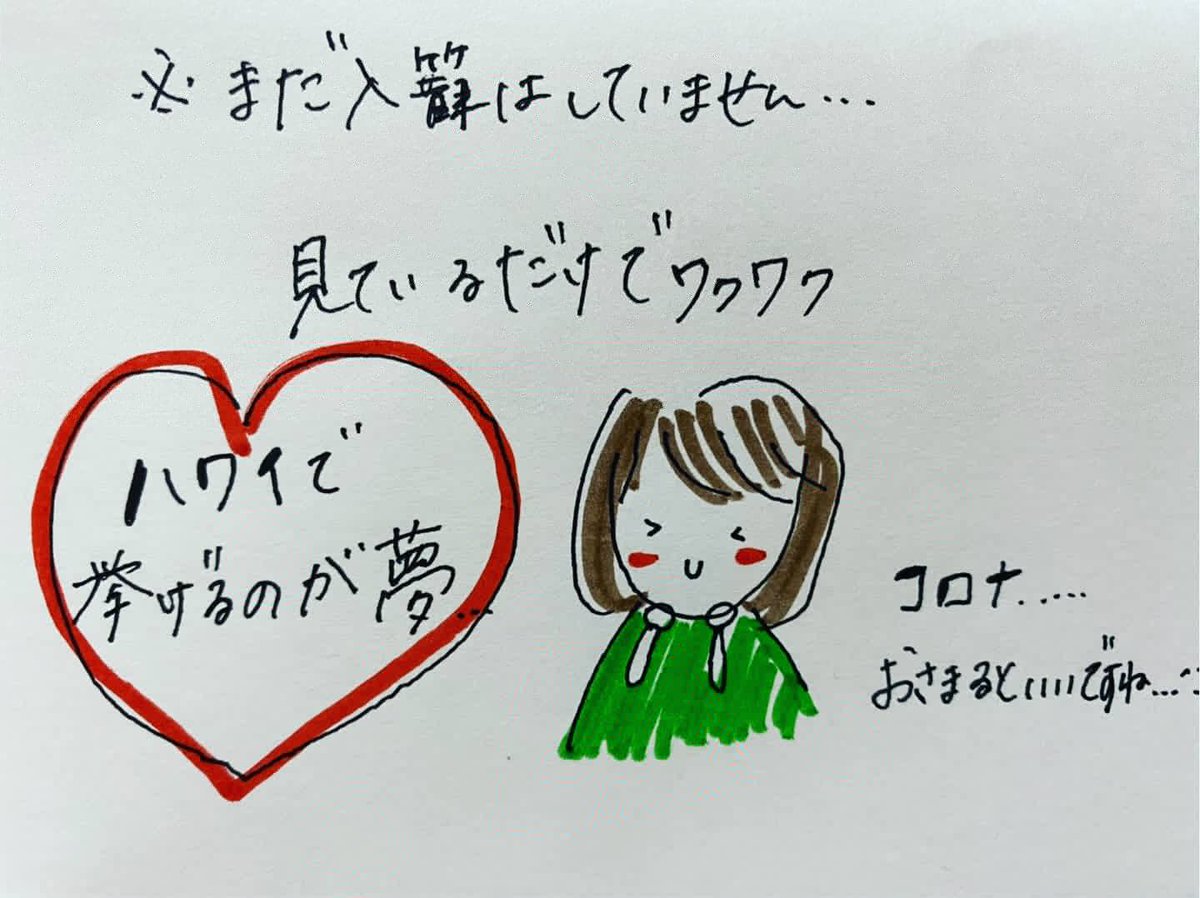 ※まだ入籍はしていません…
見ているだけでワクワク
ハワイで
挙げるのが夢…
コロナ……
おさまるといいですね…